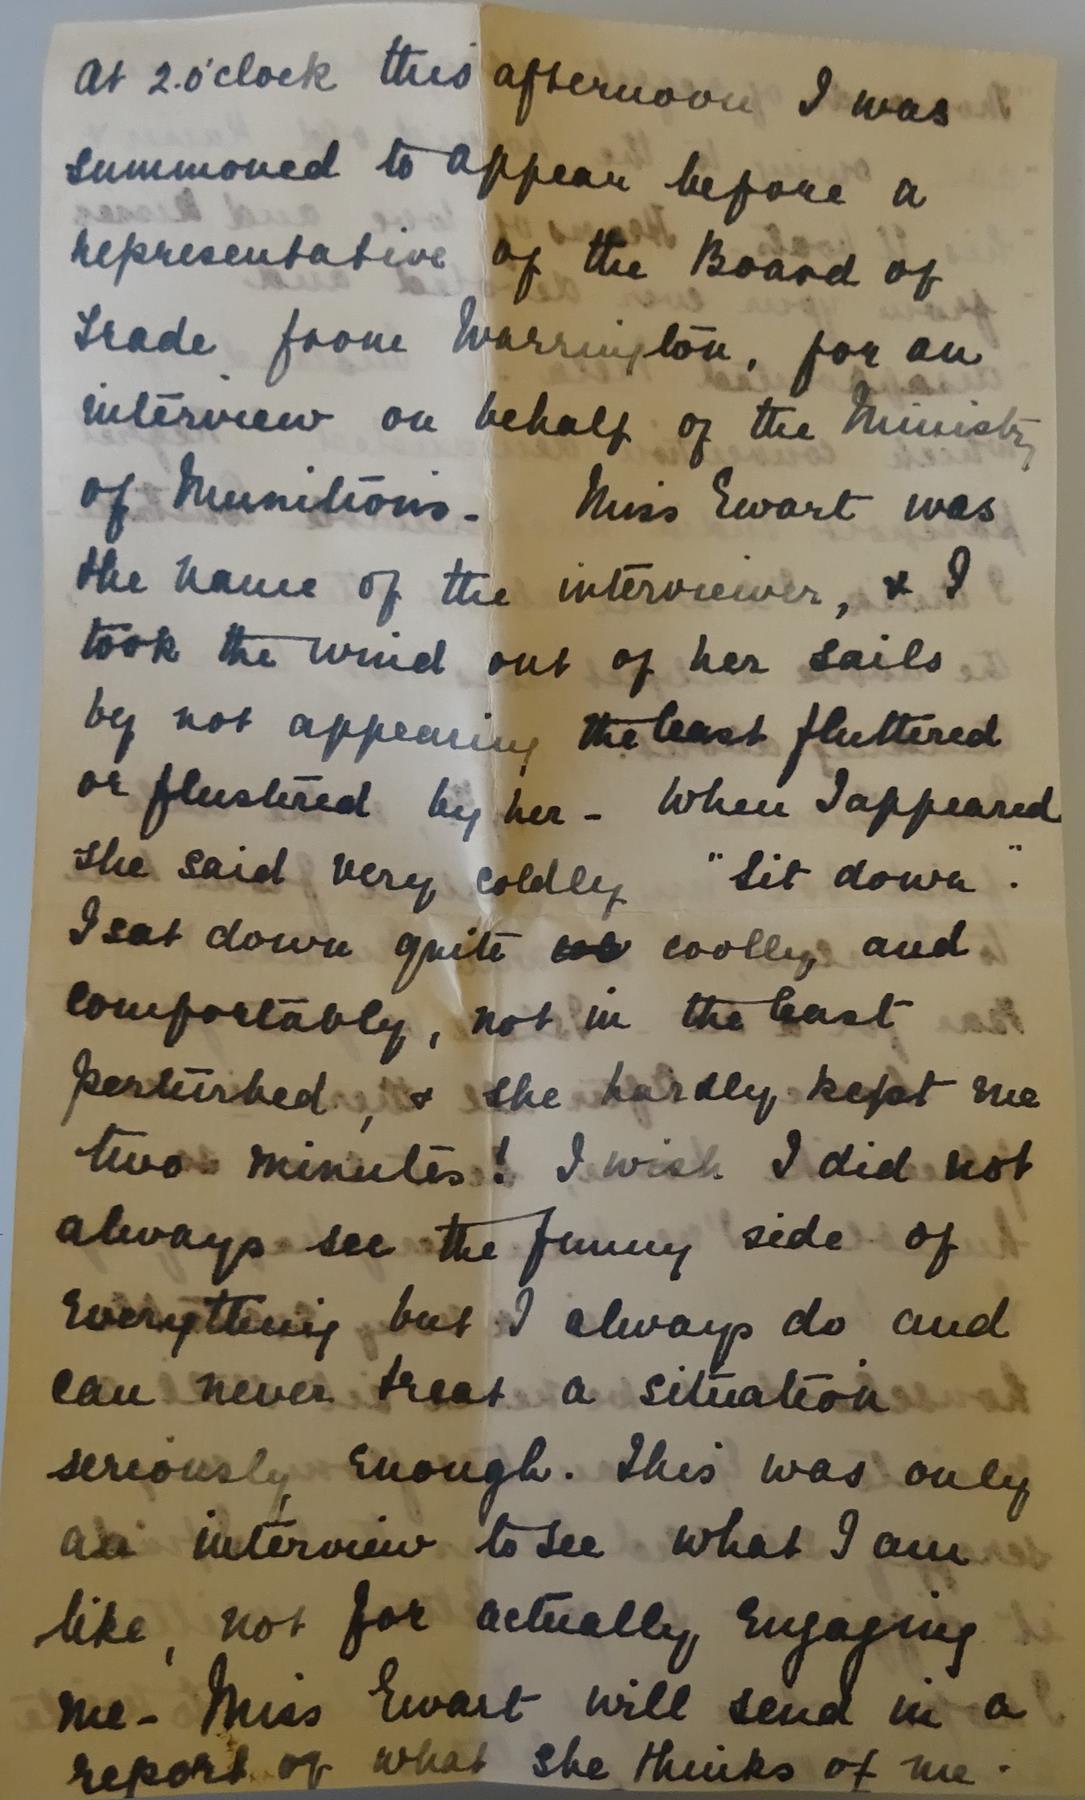 At 2.o'clock this afternoon I was
summoned to appear before a
representative of the Board of
Trade from Warrington, for an
interview on behalf of the Ministry
of Munitions - Miss Ewart was
the name of the interviewer, & I
took the wind out of her sails
by not appearing the least fluttered
or flustered by her - When I appeared
she said very coldly "Sit down".
I sat down quite coolly and
comfortably, not in the least
perturbed, & she hardly kept me
two minutes! I wish I did not
always see the funny side of
everything but I always do and
can never treat a situation
seriously enough. This was only
an interview to see what I am
like, not for actually engaging
me - Miss Ewart will send in a
report of what she thinks of me.